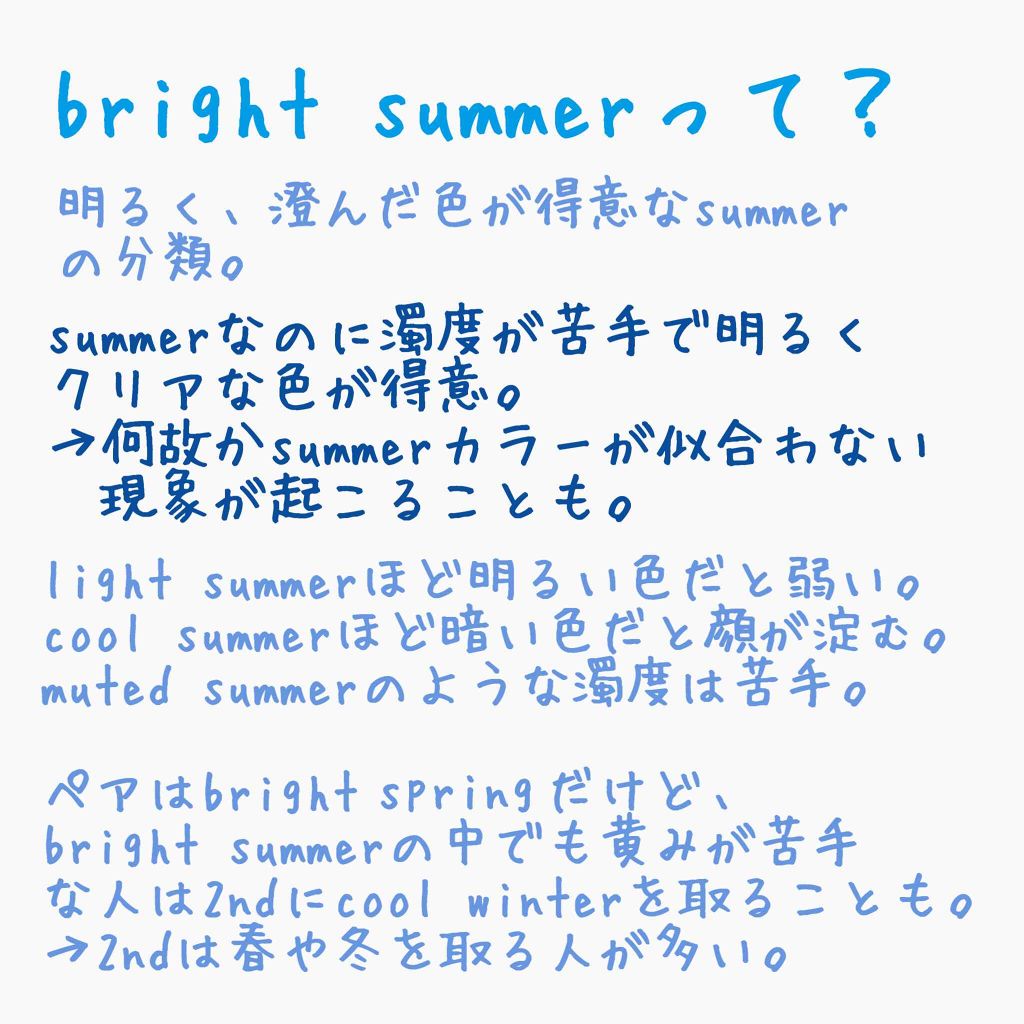 bright summerって？
明るく、澄んだ色が得意なsummer
の分類。
summerなのに濁度が苦手で明るく
クリアな色が得意。
→何故かsummerカラーが似合わない
現象が起こることも。
light summerほど明るい色だと弱い。
cool summerほど暗い色だと顔が淀む。
muted summerのような濁度は苦手。
ペアはbright springだけど、
bright summerの中でも黄みが苦手
な人は2ndにcool winterを取ることも。
→2ndは春や冬を取る人が多い。